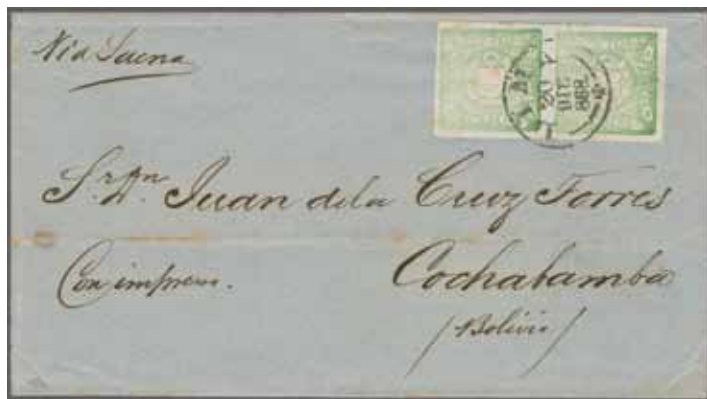 Via Tacna
20
DIC.
868.
Sr. Dn. Juan dela Cruz Torres
Con impreso. Cochabamba
/Bolivia/